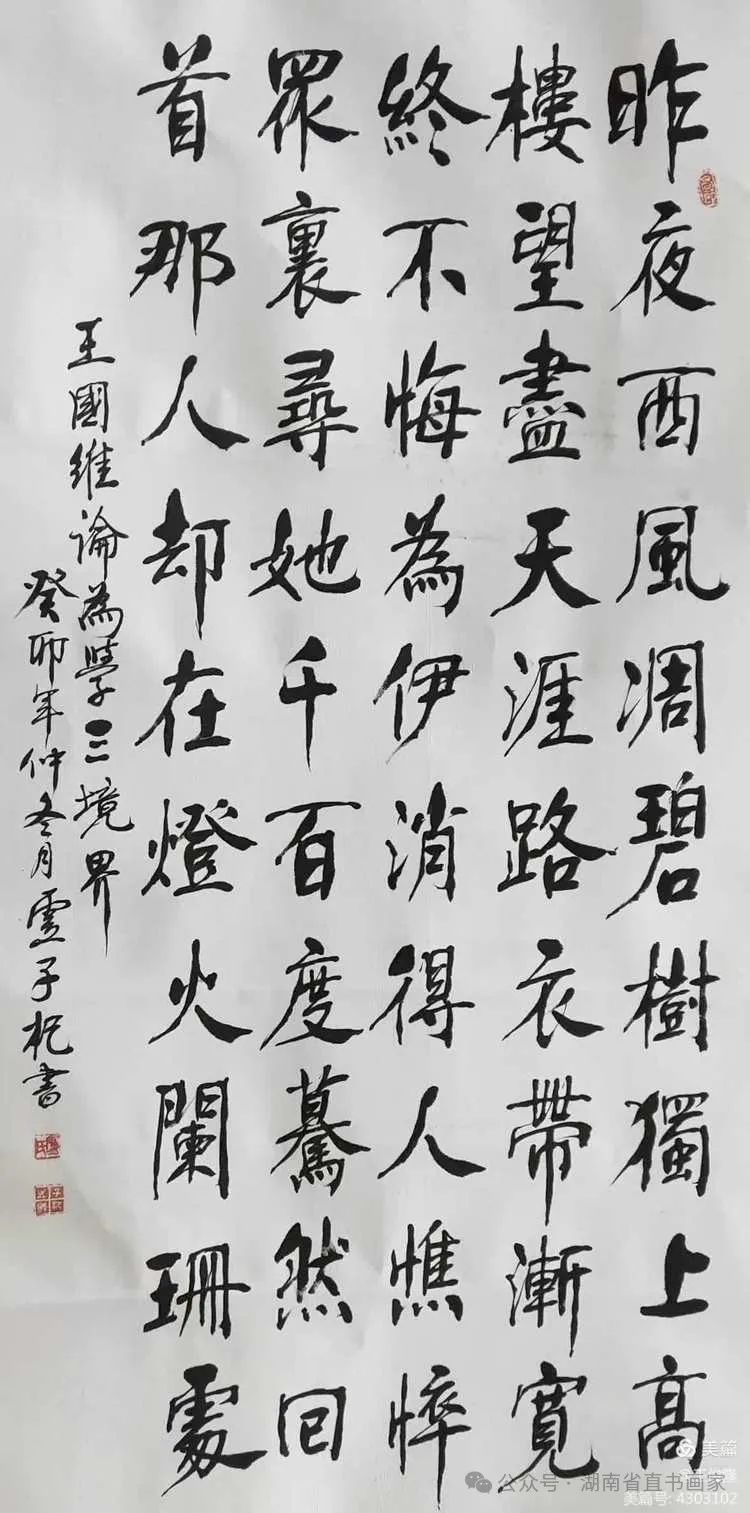 昨夜西風凋碧樹獨上高
樓望盡天涯路衣帶漸寬
終不悔為伊消得人憔悴
眾裏尋她千百度驀然回
首那人却在燈火闌珊處
王國維論為學三境界
癸卯年仲冬月雲子杞書
美篇
公众号·湖南省直书画家
美篇号:4303102